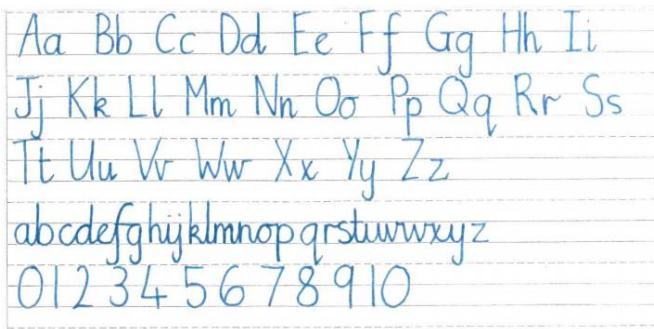 Aa Bb Cc Dd Ee Ff Gg Hh Ii
Jj Kk Ll Mm Nn Oo Pp Qq Rr Ss
Tt Uu Vv Ww Xx Yy Zz
abcdefghijklmnopqrstuvwxyz
012345678910